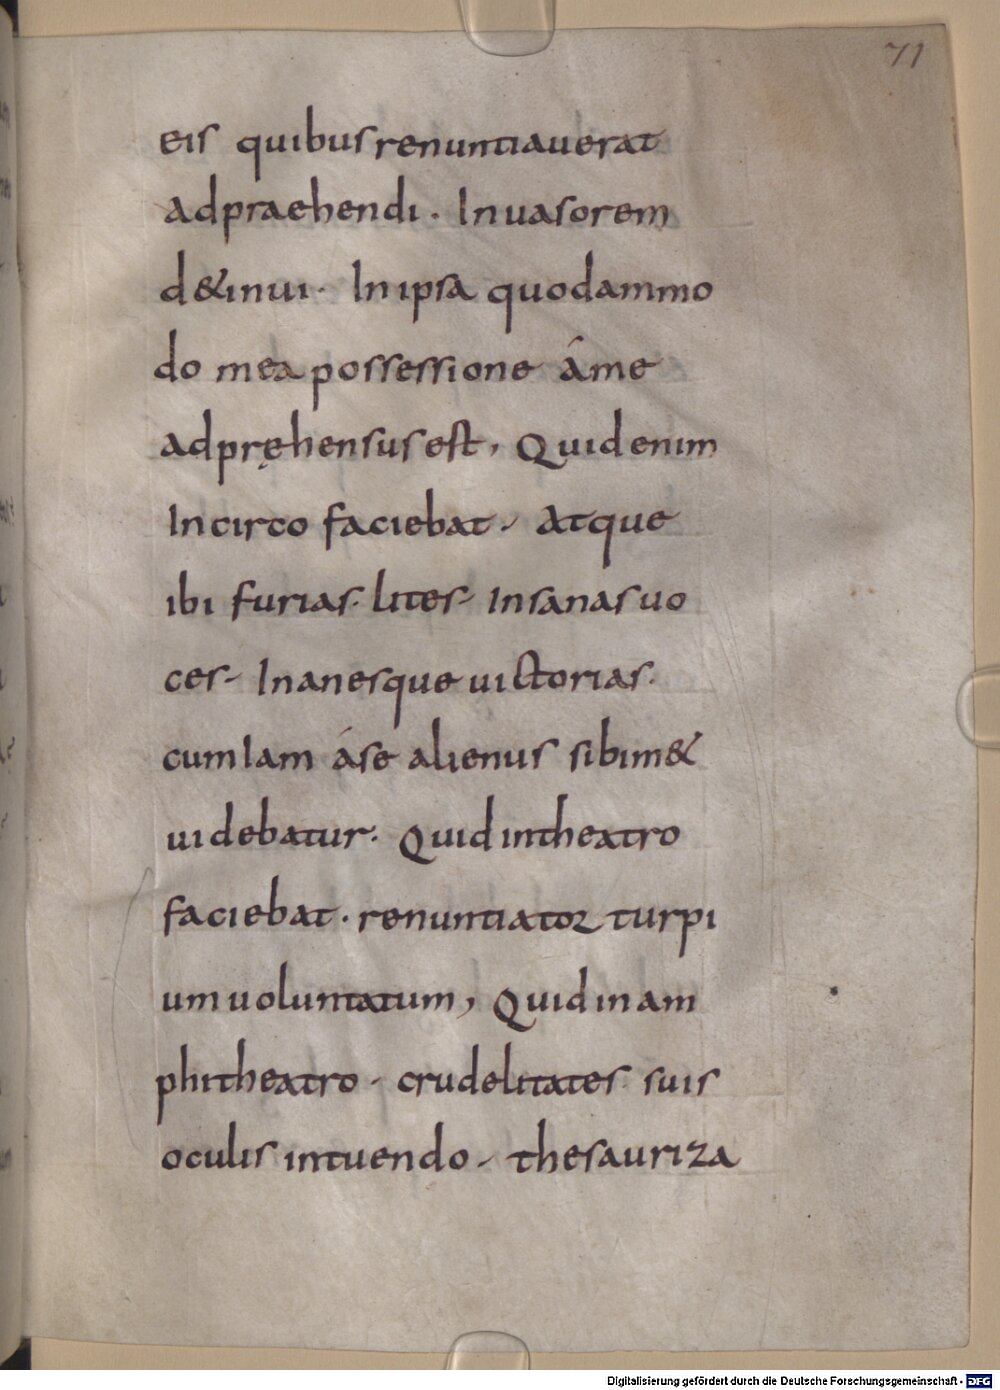 71
eis quibus renuntiauerat
adpraehendi. Inuasorem
d&inui. In ipsa quodammo
do mea possessione áme
adpręhensus est, Quid enim
Incirco faciebat. Atque
ibi furias. lites. Insanas uo
ces. Inanesque uictorias.
cum Iam áse alienus sibim&
uidebatur. Quid intheatro
faciebat. renuntiator turpi
um uoluntatum, Quid in am
phitheatro. crudelitates suis
oculis intuendo. thesauriza
Digitalisierung gefördert durch die Deutsche Forschungsgemeinschaft - DFG